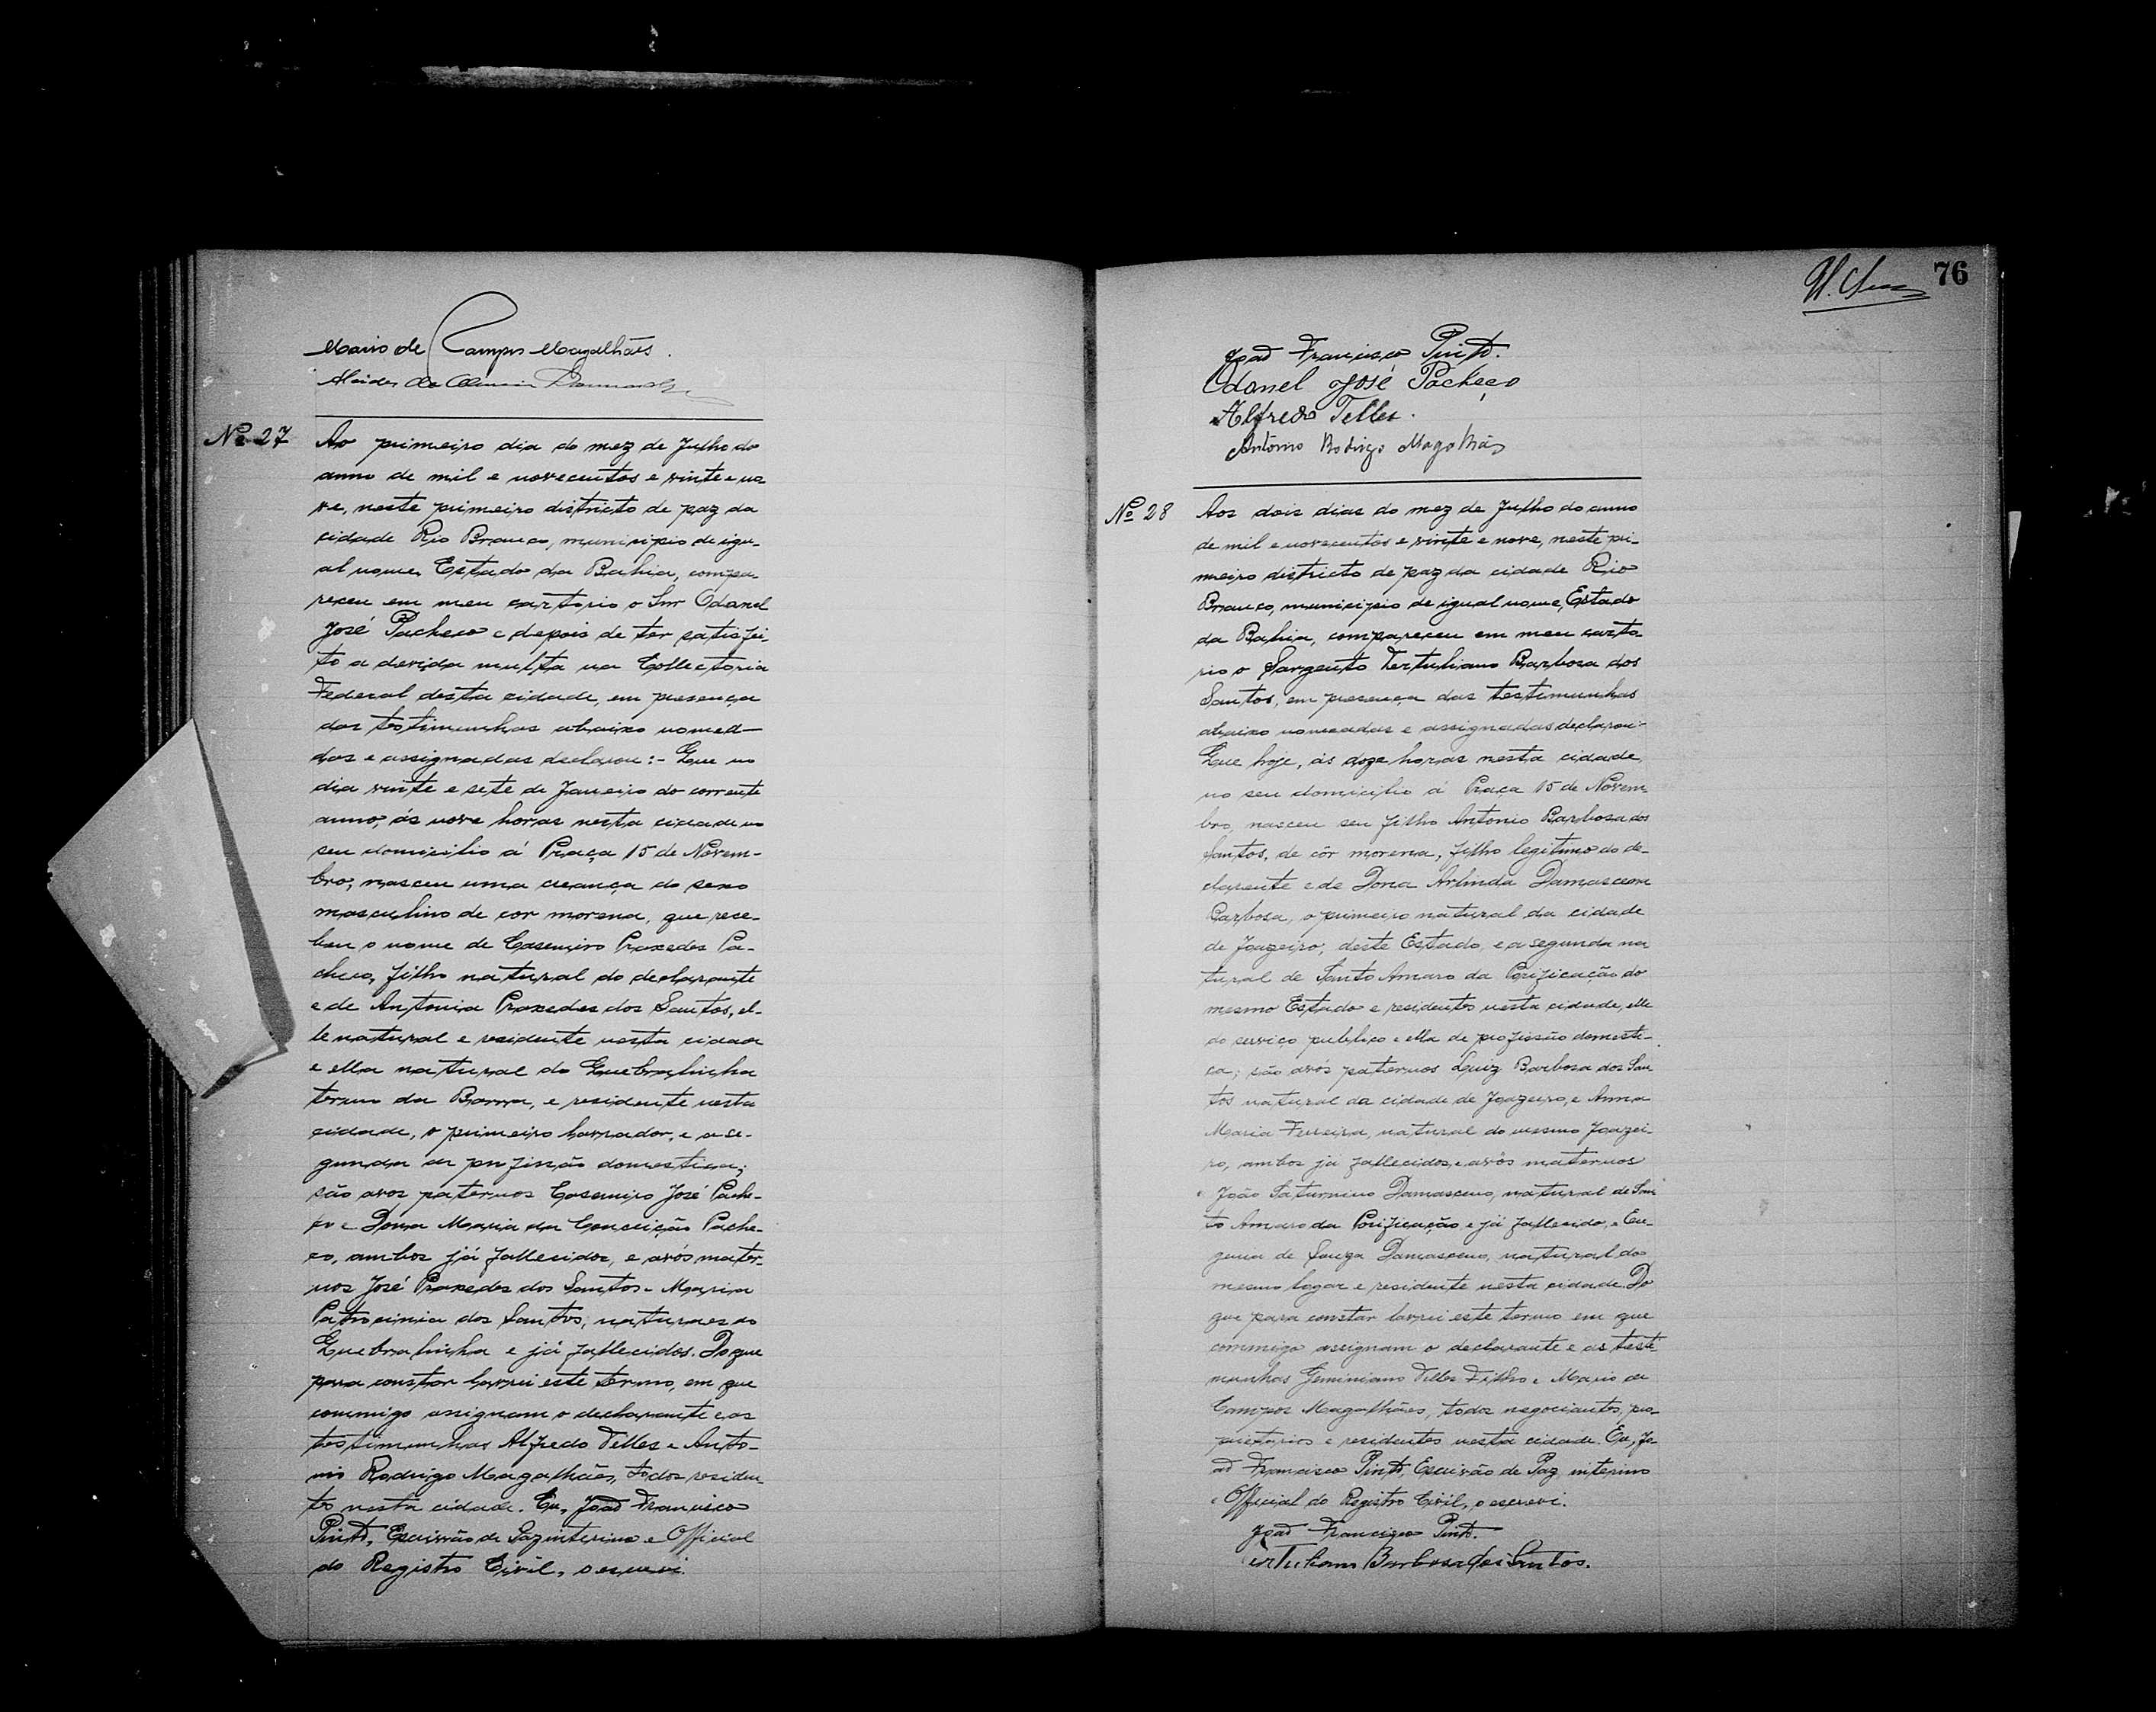 Mario de Campos Magalhães.
Alcides de Oliveira
Nº 27
Ao primeiro dia do mez de Julho do
anno de mil e novecentos e vinte e no
ve, neste primeiro districto de paz da
cidade Rio Branco, municipio de igu-
al nome, Estado da Bahia, compa-
receu em meu cartorio o Snr Odonel
José Pacheco e depois de ter satisfei-
to a devida multa na Collectoria
Federal desta cidade, em presença
das testimunhas abaixo nomea-
das e assignadas declarou:- Que no
dia vinte e sete de Janeiro do corrente
anno, ás nove horas nesta cidade no
seu domicilio á Praça 15 de Novem-
bro, nasceu uma creança do sexo
masculino de cor morena, que rese-
beu o nome de Casemiro Praxedes Pa-
checo, filho natural do declarante
e de Antonia Praxedes dos Santos, el-
le natural e residente nesta cidade
e ella natural do Quebralinha
termo da Barra, e residente nesta
cidade, o primeiro lavrador, e a se-
gunda de profissão domestica;
são avos paternos Casemiro José Pache-
co e Dona Maria da Conceição Pache-
co, ambos já fallecidos, e avós mater-
nos José Praxedes dos Santos e Maria
Patrocinia dos Santos, naturaes do
Quebralinha e já fallecidos. Do que
para constar lavrei este termo, em que
commigo assignam o declarante e as
testimunhas Alfredo Telles e Anto-
nio Rodrigo Magalhães, todos residen-
tes nesta cidade. Eu, João Francisco
Pinto, Escrivão de Paz interino e Official
do Registro Civil, o escrevi.
76
João Francisco Pinto.
Odonel José Pacheco
Alfredo Telles.
Antônio Rodrigo Magalhães
Nº 28
Aos dois dias do mez de Julho do anno
de mil e novecentos e vinte e nove, neste pri-
meiro districto de paz da cidade Rio
Branco, municipio de igual nome, Estado
da Bahia, compareceu em meu carto-
rio o Sargento Tertuliano Barbosa dos
Santos, em presença das testimunhas
abaixo nomeadas e assignadas declarou:-
Que hoje, ás doze horas nesta cidade,
no seu domicilio á Praça 15 de Novem
bro, nasceu seu filho Antonio Barbosa dos
Santos, de côr morena, filho legitimo do de-
clarante e de Dona Arlinda Damasceno
Barbosa, o primeiro natural da cidade
de Joazeiro, deste Estado, e a segunda na
tural de Santo Amaro da Purificação do
mesmo Estado e residentes nesta cidade, elle
do serviço publico e ella de profissão domesti-
ca; são avós paternos Luiz Barbosa dos San
tos natural da cidade de Joazeiro, e Anna
Maria Ferreira, natural do mesmo Joazei-
ro, ambos já fallecidos, e avós maternos
João Saturnino Damasceno, natural de San
to Amaro da Purificação e já fallecido, e Eu-
genia de Souza Damasceno, natural do
mesmo logar e residente nesta cidade. Do
que para constar lavrei este termo em que
commigo assignam o declarante e as teste-
munhas Geminiano Telles Filho e Mario de
Campos Magalhães, todos negociantes, pro-
prietarios e residentes nesta cidade. Eu, Jo-
ão Francisco Pinto, Escrivão de Paz interino
e Official do Registro Civil, o escrevi.
João Francisco Pinto.
Tertuliano Barbosa dos Santos.